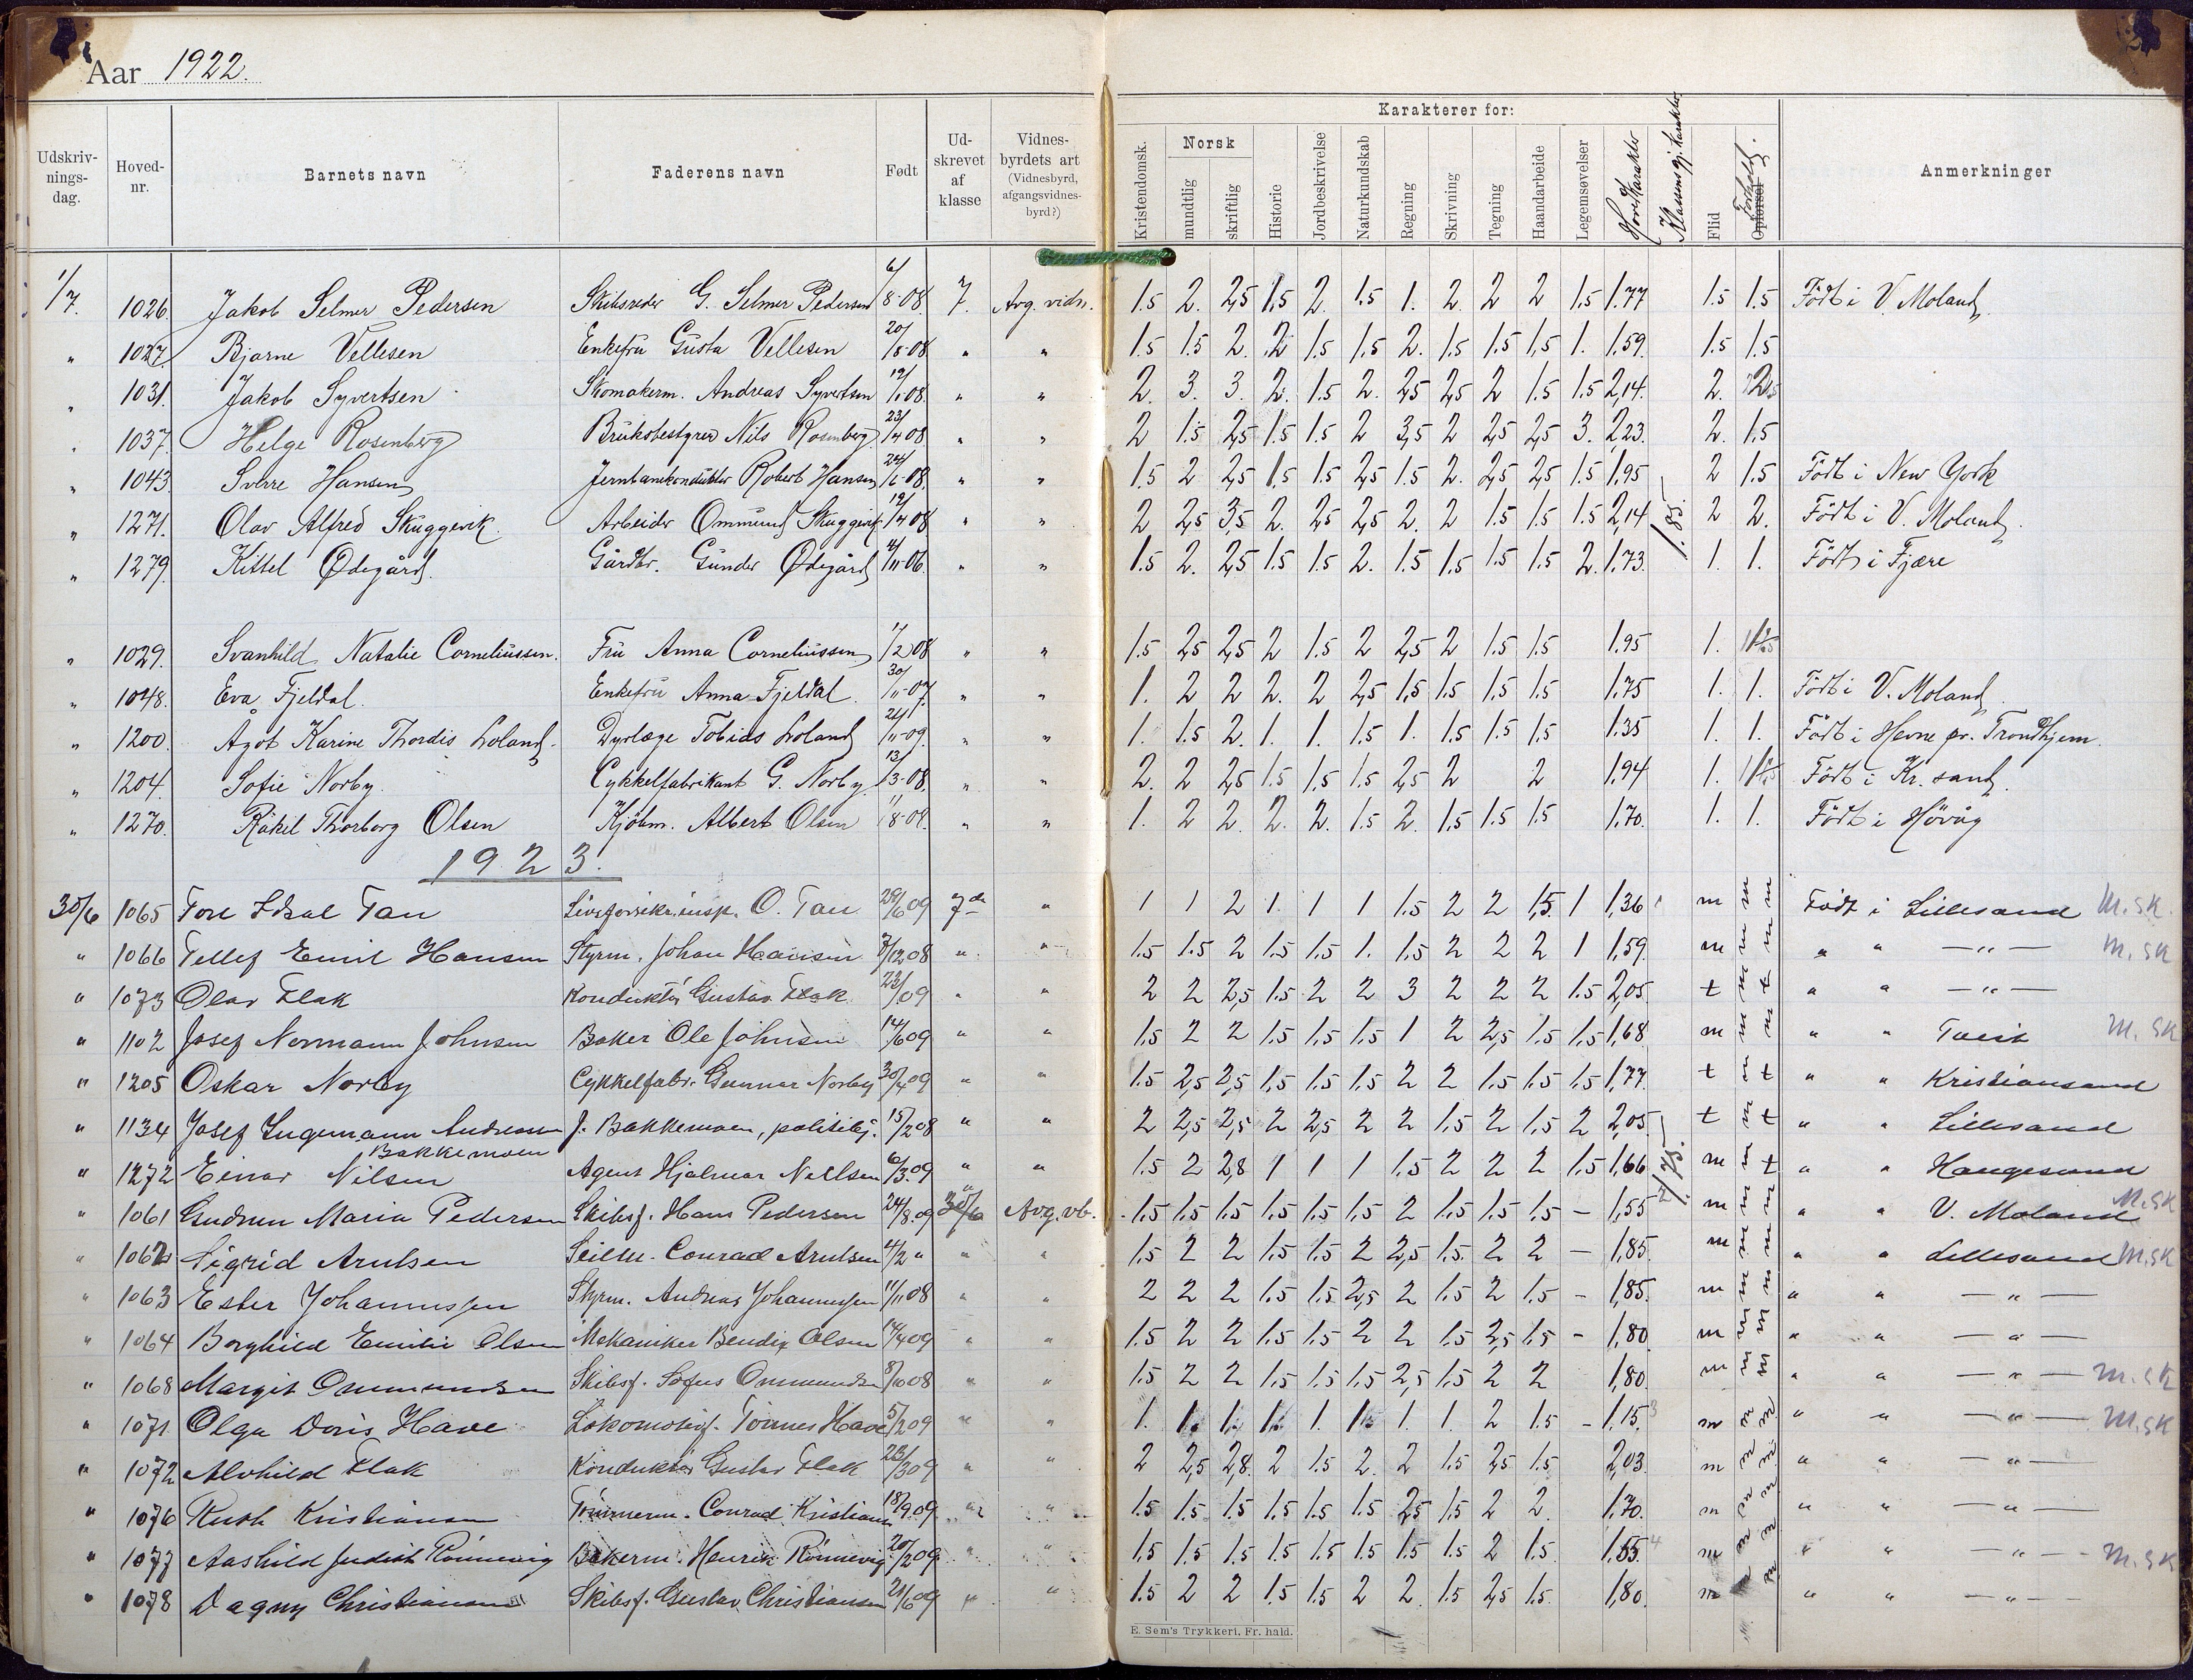 Aar 1922.
Karakterer for:
Udskriv-nings-dag. Hoved-nr. Barnets navn Faderens navn Født Ud-skrevet af klasse Vidnes-byrdets art (Vidnesbyrd, afgangsvidnes-byrd?) Kristendomsk. Norsk mundtlig skriftlig Historie Jordbeskrivelse Naturkundskab Regning Skrivning Tegning Haandarbeide Legemsøvelser Hovedkarakter Klassens gj. karakter Flid Opførsel Forhold. Anmerkninger
1/7. 1026. Jakob Selmer Pedersen Skibsreder G. Selmer Pedersen 6/8-08 7. Avg. vidn. 1.5 2. 2,5 1.5 2. 1.5 1. 2. 2 2 1.5 1.77 1.5 1.5 Født i V. Moland
" 1027. Bjarne Vellesen Enkefru Gusta Vellesen 20/8-08 " " 1.5 1.5 2. 2 1.5 1.5 2. 1.5 1.5 1,5 1. 1.59. 1.5 1.5
" 1031. Jakob Syvertsen Skomakerm. Andreas Syvertsen 12/1.08. " " 2. 3. 3. 2. 1.5 2. 2,5 2,5 2 1.5 1.5 2,14. 2.
" 1037. Helge Rosenberg Bruksbestyrer Nils Rosenberg 23/4 08 " " 2 1.5 2,5 1.5 1.5 2 3,5 2 2,5 2,5 3. 2,23. 2. 1.5
" 1043. Sverre Hansen Jernbanekonduktør Robert Hansen 24/6-08. " " 1.5 2 2,5 1.5 1.5 2,5 1.5 2. 2,5 2,5 1.5 1,95 2 1.5 Født i New York
" 1271. Olav Alfred Skuggevik. Arbeider Ommund Skuggevik 19/4 08 " " 2 2,5 3,5 2. 2,5 2,5 2. 2 1.5 1.5 1.5 2,14 1.85. 2 2. Født i V. Moland.
" 1279. Kittel Ødegård. Gårdbr. Gunder Ødegård 4/11-06. " " 1.5 2. 2,5 1.5 1.5 2. 1.5 1.5 1.5 1.5 2. 1.73. 1. 1. Født i Fjære
" 1029. Svanhild Natalie Corneliussen. Fru Anna Corneliussen 1/2 08 " " 1.5 2,5 2,5 2 1.5 2 2,5 2 1.5 1.5 1.95 1.
" 1048. Eva Fjeldal. Enkefru Anna Fjeldal. 30/11-07. " " 1. 2 2 2. 2 2,5 1,5 1.5 1.5 1.5 1.75 1. 1. Født i V. Moland
" 1200. Agot Karine Thordis Loland. Dyrlæge Tobias Loland 24/11-09. " " 1. 1.5 2. 1. 1. 1.5 1. 1.5 1.5 1.5 1.35 1. 1. Født i Hevne pr. Trondhjem.
" 1204. Sofie Norby. Cykkelfabrikant G. Norby. 13/3-08. " " 2. 2 2,5 1.5 1.5 1.5 2,5 2 2 1.94 1. Født i Kr. sand.
" 1270. Råkil Thorborg Olsen Kjøbm. Albert Olsen 1/8-08. " " 1. 2 2. 2. 2. 1.5 2. 1.5 1.5 1.5 1.70. 1. 1. Født i Høvåg
1923.
30/6 1065 Tore Idsal Tau Livsforsikr.insp. O. Tau 28/6 09 7de " 1 1 2 1. 1 1 1.5 2 2 1,5. 1 1,36 m m m Født i Lillesand M.sk.
" 1066 Tellef Emil Hansen Styrm. Johan Hansen 7/12,08 " " 1.5 1.5 2 1.5 1.5 1. 1.5 2 2 2 1 1,59. m m m " " — " — M.sk
" 1073 Olav Flak Konduktør Gustav Flak 23/ /09 " " 2 2 2,5 1.5 2 2 3 2 2 2 1.5 2,05. t m t " " — " —
" 1102 Josef Normann Johnsen Baker Ole Johnsen 14/6 09 " " 1.5 2 2 1.5 1.5 1.5 1 2 2,5 1.5 1.5 1,68. m m m " " Tveit M.sk
" 1205 Oskar Norby Cykkelfabr. Gunnar Norby 30/4 09 " " 1.5 2,5 2,5 1.5 1.5 1.5 2 2 1.5 1.5 1.5 1,77. t t " " Kristiansand
" 1134 Josef Ingemann Andreassen J. Bakkemoen, politibj. 15/2 08 " " 2 2,5 2,5 2 2,5 2 2 1.5 2 1.5 2 2,05. t m t " " Lillesand
Bakkemoen
" 1272 Einar Nilsen Agent Hjalmar Nillsen 6/3.09 " " 1.5 2 2,8 1 1 1 1.5 2 2 2 1.5 1,66. 1.75. m m t " " Haugesund
" 1061 Gudrun Maria Pedersen Skibsf. Hans Pedersen 24/8.09 30/6 Avg. vb. 1.5 1.5 1.5 1.5 1.5 1.5 2 1.5 1.5 1.5 — 1,55 m m m " " V. Moland M.sk
" 1062 Sigrid Arntsen Seilm. Conrad Arntsen 4/2 " " " 1.5 2 2 1.5 1.5 2 2,5 1.5 2 2 — 1,85. m m m " " Lillesand M.sk
" 1063 Ester Johannessen Styrm. Andreas Johannessen 11/11 08 " " 2 2 2 1.5 1.5 2,5 2 1.5 2 1.5 - 1,85. m m m " " — " —
" 1064 Borghild Emilie Olsen Mekaniker Bendix Olsen 14/4 09 " " 1.5 2 2 1.5 1.5 2 2 1.5 2,5 1.5 - 1,80. m m m " " — " —
" 1068 Margit Ommundsen Skibsf. Sofus Ommundsen 8/10 08 " " 1.5 2 2 1.5 1.5 1.5 2,5 1.5 2 2 1,80. m m m " " — " — M.sk
" 1071 Olga Doris Have Lokomotivf. Tønnes Have 5/2 09 " " 1. 1. 1. 1. 1. 1. 1. 1. 2 1.5 - 1,15. m m m " " — " — M.sk
" 1072 Alvhild Flak Konduktør Gustav Flak 23/3 09 " " 2 2,5 2,8. 2 1.5 2. 2 1.5 2,5 1.5 2,03. m m m " " — " —
" 1076 Ruth Kristiansen Tømmerm. Conrad Kristians 18/9.09 " " 1.5 1.5 1.5 1.5 1.5 1.5 2,5 1.5 2 2. 1,70. m m m " " — " —
" 1077 Aashild Judith Rönnevig Bakerm. Henrik Rönnevig 20/2 09 " " 1.5 1.5 1.5 1.5 1.5 1.5 1.5 1.5 2 1.5 1,55. m m m " " — " — M.sk
" 1078 Dagny Christiansen Skibsf. Gustav Christiansen 21/6 09 " " 1.5 2 2 1.5 1.5 2 2. 1.5 2,5 1.5. 1,80. m m " " — " —
E. Sem's Trykkeri, Fr. hald.